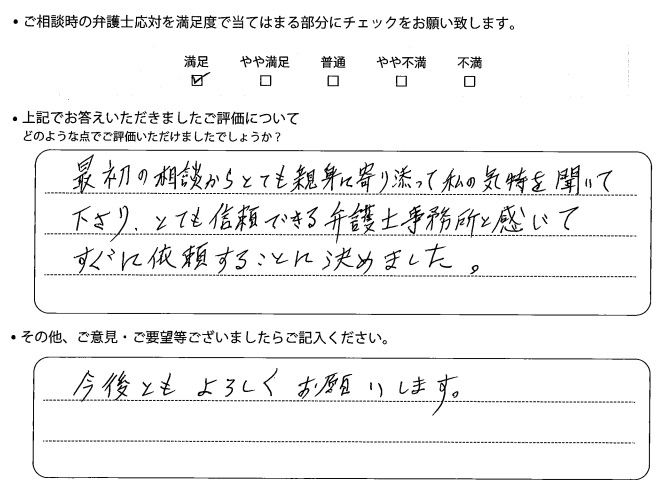 • ご相談時の弁護士応対を満足度で当てはまる部分にチェックをお願い致します。
満足 やや満足 普通 やや不満 不満
☑ □ □ □ □
• 上記でお答えいただきましたご評価について
どのような点でご評価いただけましたでしょうか？
最初の相談からとても親身に寄り添って私の気持を聞いて
下さり、とても信頼できる弁護士事務所と感じて
すぐに依頼することに決めました。
• その他、ご意見・ご要望等ございましたらご記入ください。
今後ともよろしくお願いします。